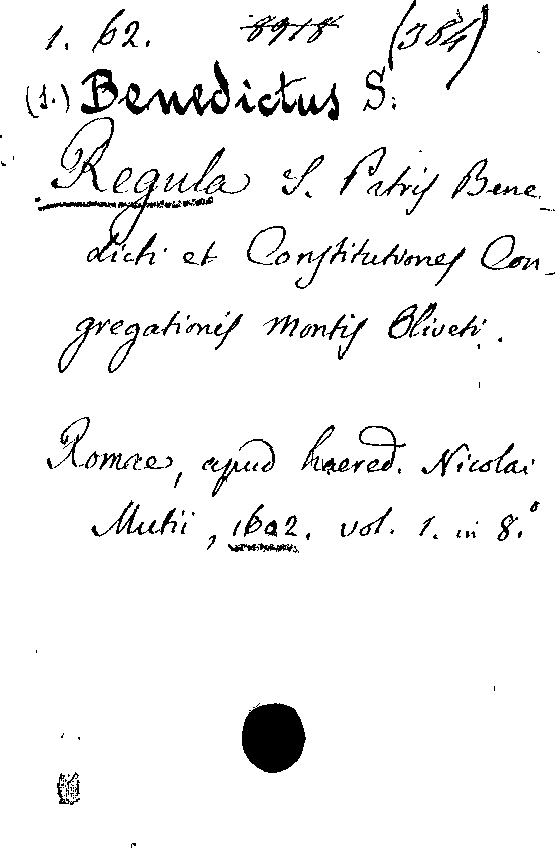 1. 62. 8918 (384)
(S.) Benedictus S.
Regula S. Patris Bene-
dicti et Constitutiones Con-
gregationis Montis Oliveti.
Romae, apud haered. Nicolai
Mutii, 1602. vol. 1. in 8.°